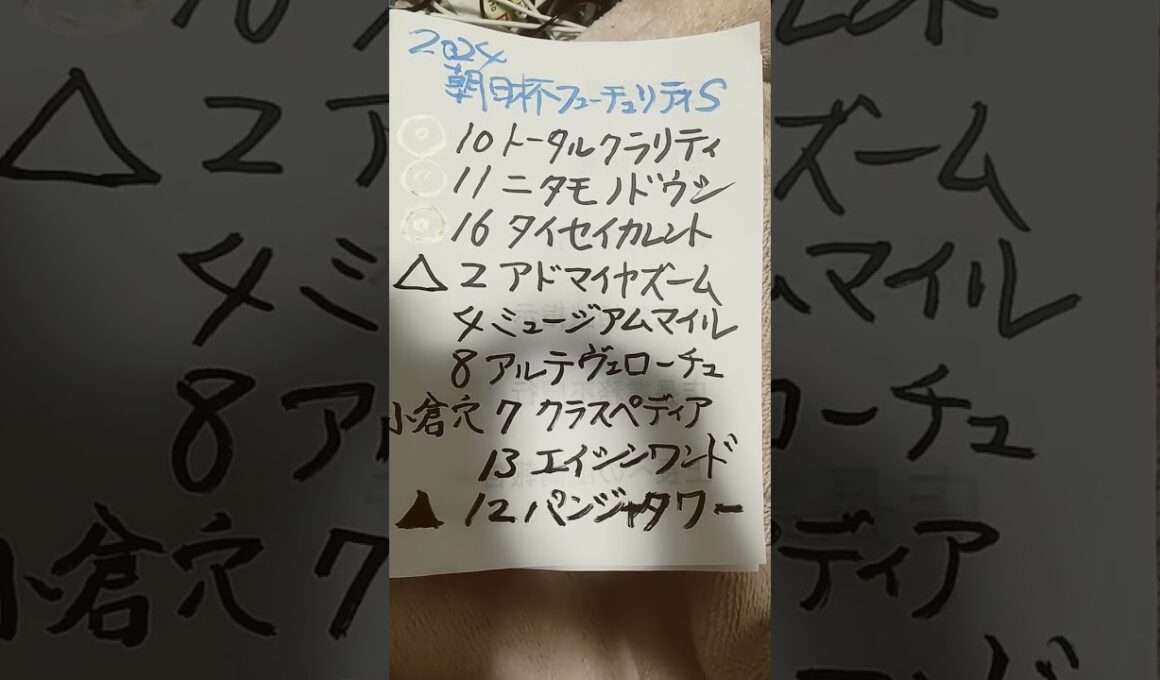 2024
朝日杯フューチュリティS
◎ 10 トータルクラリティ
◎ 11 ニタモノドウシ
◎ 16 タイセイカレント
△ 2 アドマイヤズーム
4 ミュージアムマイル
8 アルテヴェローチェ
小倉穴 7 クラスペディア
13 エイシンワンド
▲ 12 パンジャタワー